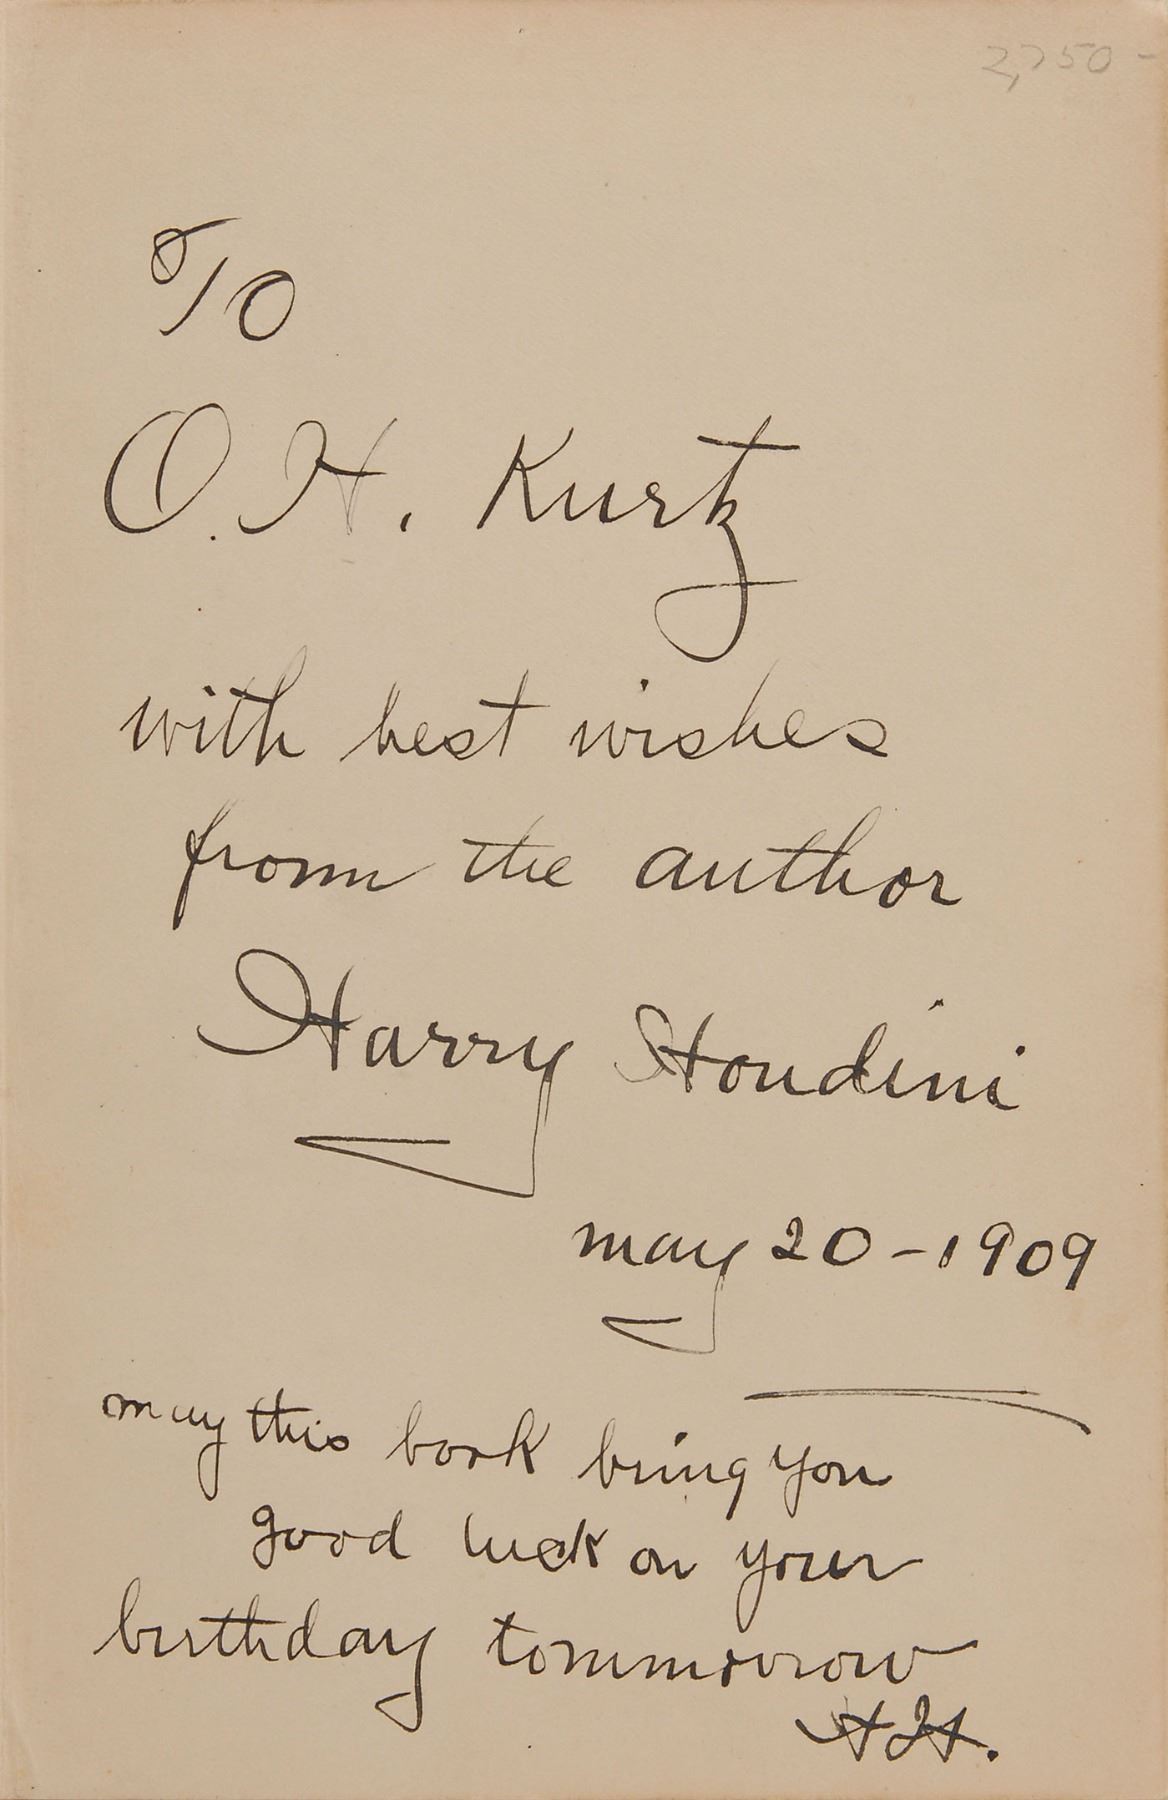 2,750-
To
O. H. Kurtz
with best wishes
from the author
Harry Houdini
may 20-1909
may this book bring you
good luck on your
birthday tommorrow
HH.